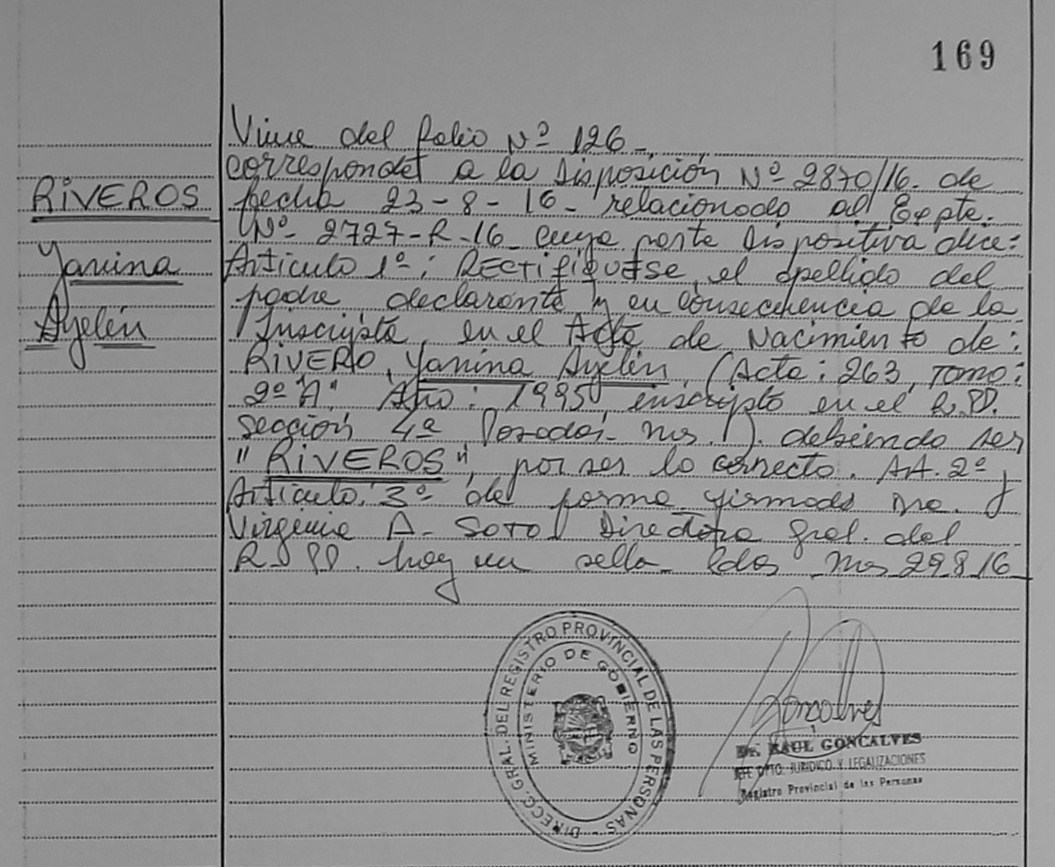 169
RIVEROS
Yanina
Ayelén
Viene del folio Nº 126-
corresponde a la Disposición Nº 2870/16. de
fecha 23-8-16- relacionado al Expte.
Nº- 2727-R-16 cuya parte dispositiva dice:
Artículo 1º: RECTIFIQUESE el apellido del
padre declarante y en consecuencia de la
Inscripta, en el Acta de Nacimiento de:
RIVERO, Yanina Ayelén, (Acta: 263, Tomo:
2º "A" Año: 1995, inscripto en el R.PP.
sección 4ª Posadas- Mns.). debiendo ser
"RIVEROS", por ser lo correcto. Art. 2º y
Artículo 3º de forma firmado Dra.
Virginia A. SOTO Directora Gral. del
R.PP. hay un sello Pdas Mns 29 8 16
DIRECC. GRAL. DEL REGISTRO PROVINCIAL DE LAS PERSONAS
MINISTERIO DE GOBIERNO
Goncalves
Dr. RAUL GONCALVES
JEFE DPTO. JURIDICO Y LEGALIZACIONES
Registro Provincial de las Personas